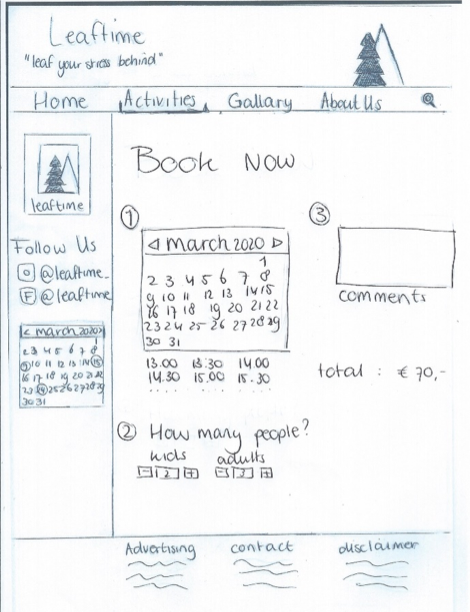 Leaftime
"leaf your stress behind"
Home Activities Gallary About Us
leaftime
Follow Us
@leaftime_
F @leaftime
< march 2020 >
1
2 3 4 5 6 7 8
9 10 11 12 13 14 15
16 17 18 19 20 21 22
23 24 25 26 27 28 29
30 31
Book Now
1
march 2020
1
2 3 4 5 6 7 8
9 10 11 12 13 14 15
16 17 18 19 20 21 22
23 24 25 26 27 28 29
30 31
13.00 13:30 14.00
14.30 15.00 15.30
. . . . . . . . . .
2 How many people?
kids adults
- 2 + - 3 +
3
comments
total : € 70,-
Advertising contact disclaimer